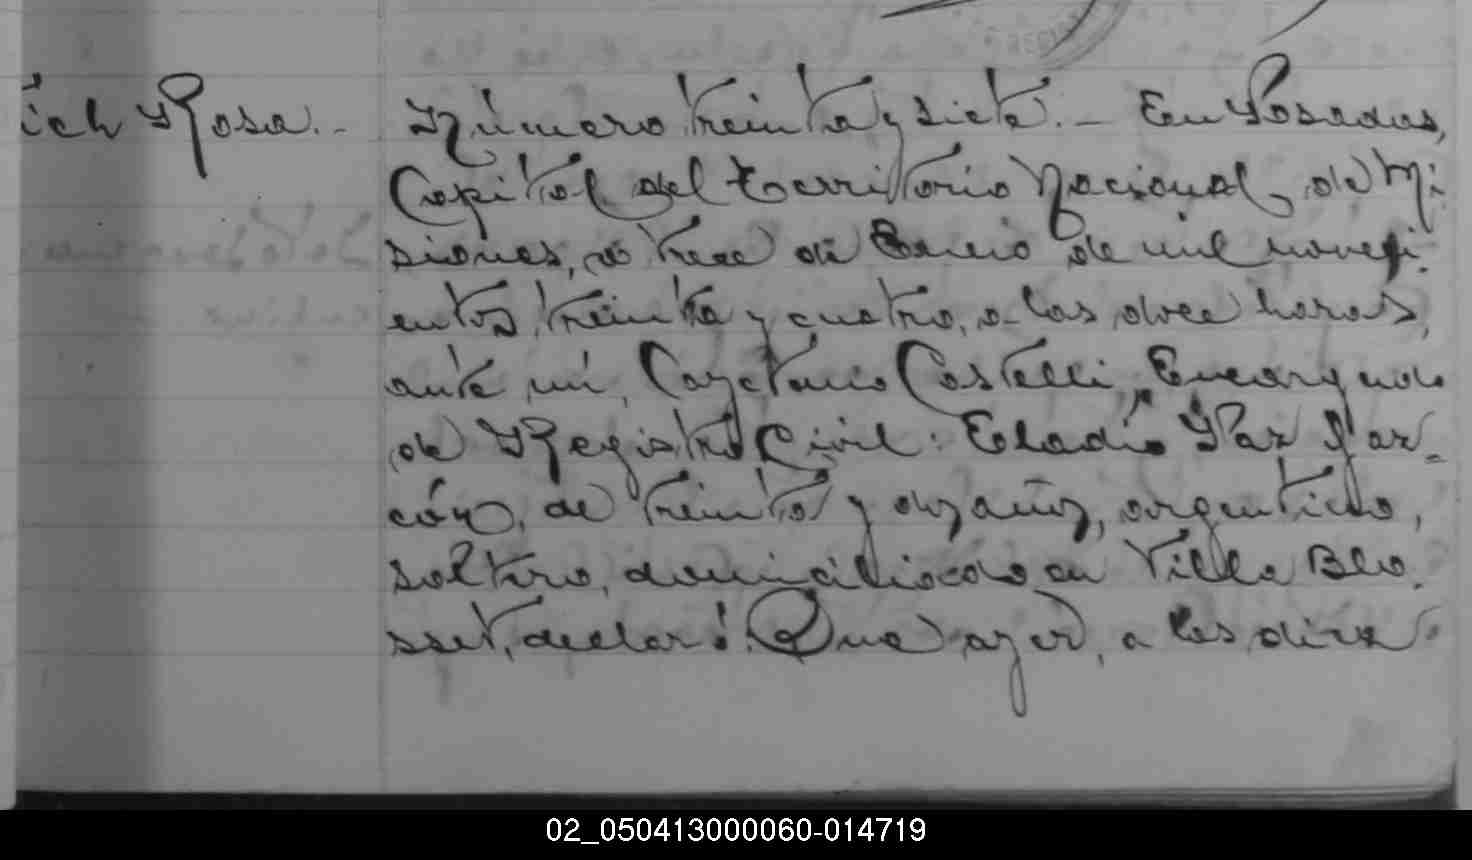 ich Rosa.-
Número treinta y siete.- En Posadas,
Capital del Territorio Nacional de Mi-
siones, a trece de Enero de mil noveci-
entos treinta y cuatro, a las doce horas,
ante mí, Cayetano Costelli, Encargado
de Registro Civil: Eladio Paz Gar-
cón, de treinta y dos años, argentino,
soltero, domiciliado en Villa Blo-
sset, declaró: Que ayer, a las diez
02_050413000060-014719